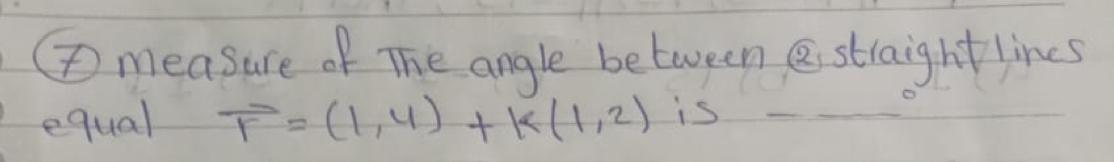 ⑦ measure of The angle between ② straight lines
equal r⃗ = (1,4) + K(1,2) is ------°